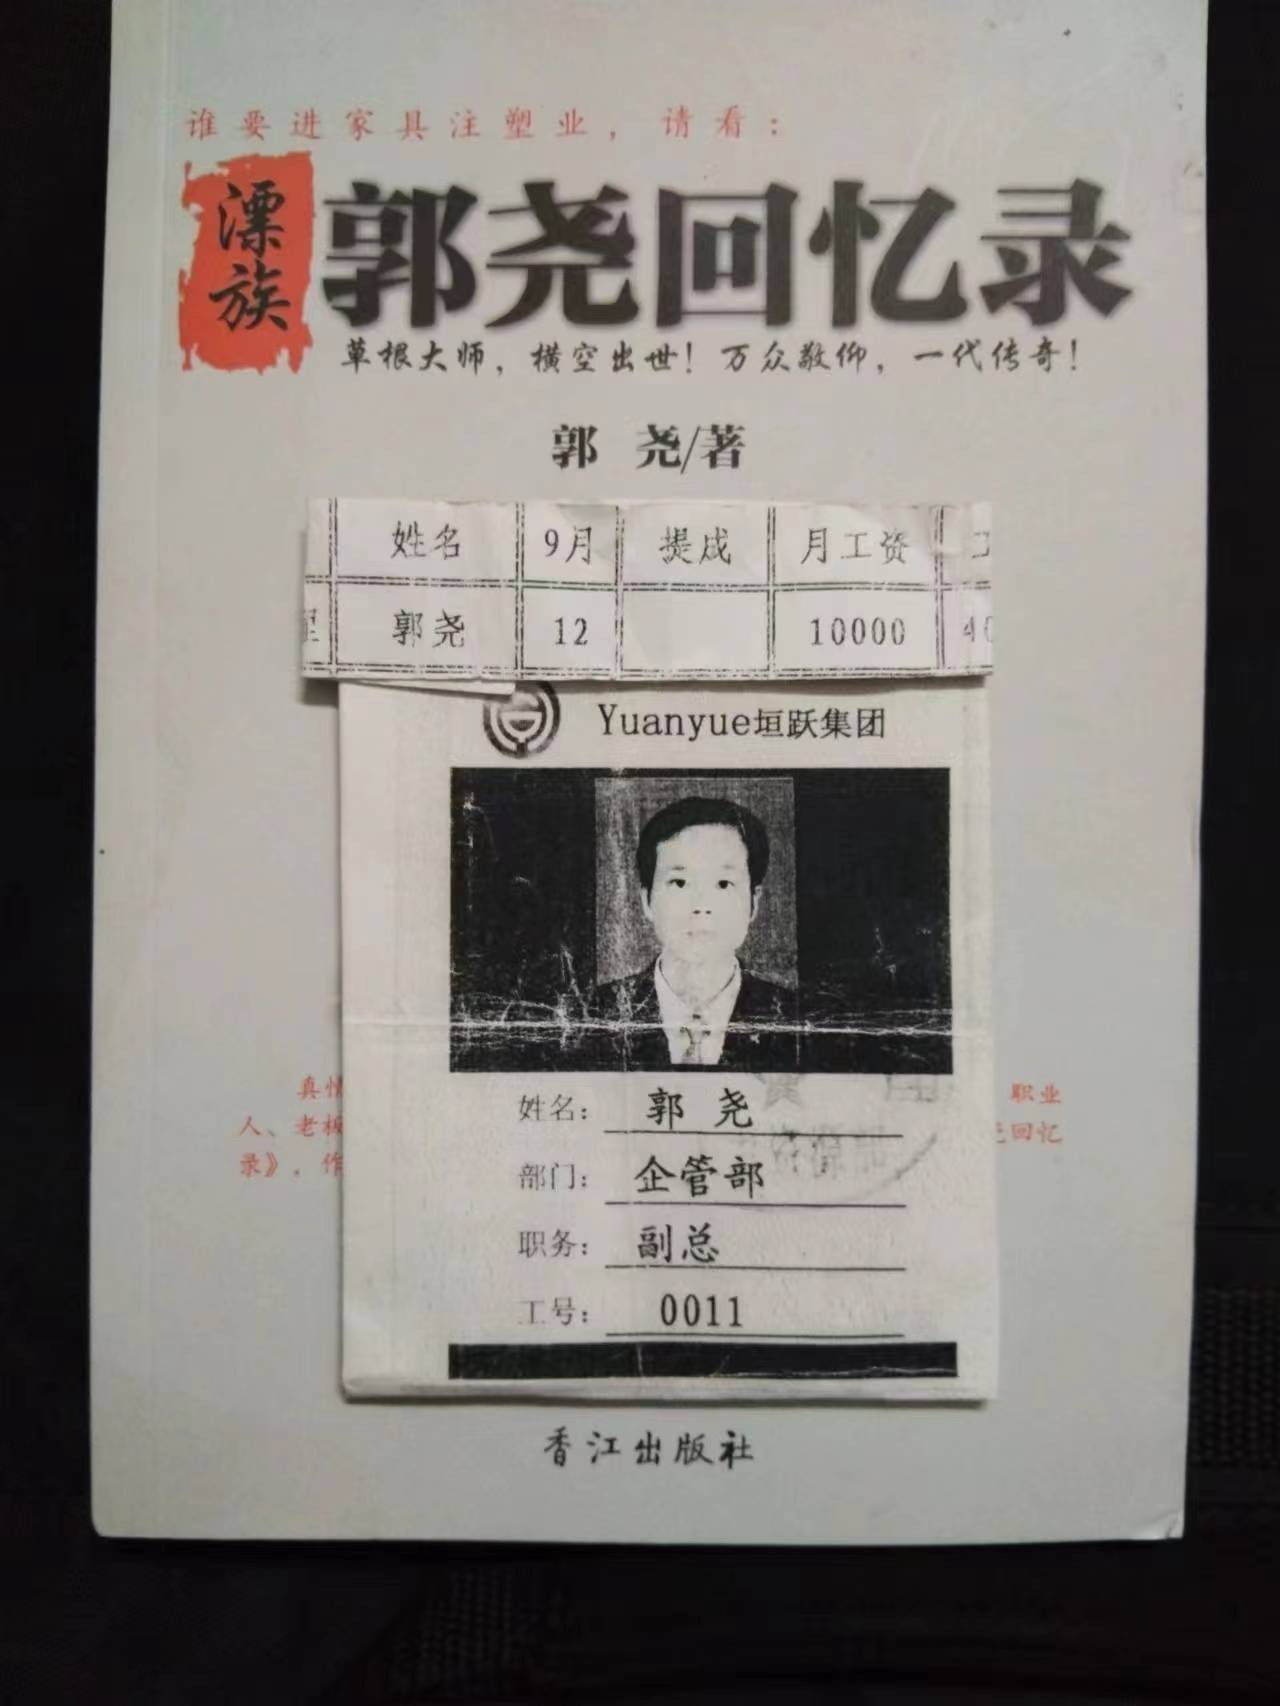 谁要进家具注塑业，请看：
漂族
郭尧回忆录
草根大师，横空出世！万众敬仰，一代传奇！
郭 尧/著
姓名 9月 提成 月工资
郭尧 12 10000
Yuanyue垣跃集团
姓名： 郭 尧
部门： 企管部
职务： 副总
工号： 0011
真情 职业
人、老板 回忆
录》，作
香江出版社